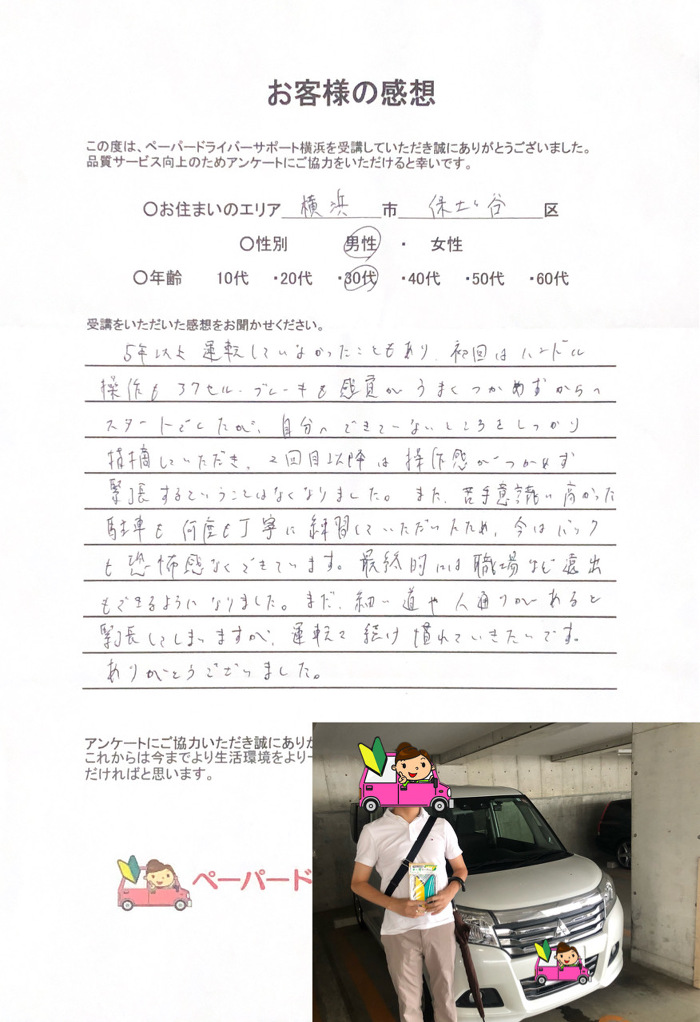 お客様の感想
この度は、ペーパードライバーサポート横浜を受講していただき誠にありがとうございました。
品質サービス向上のためアンケートにご協力をいただけると幸いです。
〇お住まいのエリア 横浜 市 保土ヶ谷 区
〇性別 男性 ・ 女性
〇年齢 10代 ・20代 ・30代 ・40代 ・50代 ・60代
受講をいただいた感想をお聞かせください。
5年以上運転していなかったこともあり、初回はハンドル
操作もアクセル・ブレーキも感覚がうまくつかめずからの
スタートでしたが、自分のできていないところをしっかり
指摘していただき、2回目以降は操作感がつかめず
緊張するということはなくなりました。また、苦手意識の高かった
駐車も何度も丁寧に練習していただいたため、今はバック
も恐怖感なくできています。最終的には職場など遠出
もできるようになりました。まだ、細い道や人通りがあると
緊張してしまいますが、運転を続け慣れていきたいです。
ありがとうございました。
アンケートにご協力いただき誠にありが
これからは今までより生活環境をより一
だければと思います。
ペーパード